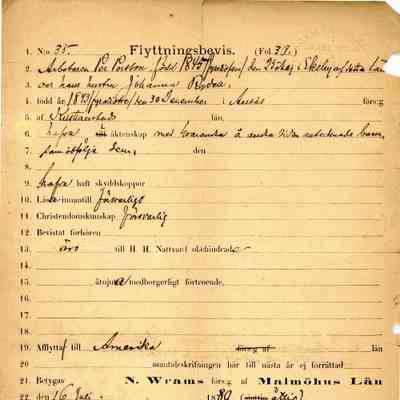 1. N:o 35. Flyttningsbevis. (Fol. 38.)
2. Arbetaren Per Persson född 1845 (fyratiofem) den 23 Maj i Ekeby af detta Län
3. och hans hustru Johanna Rydén,
4. född år 1843 (fyratiotre) den 30 December i Andrarum förs:g
5. af Kristianstads län,
6. hafva i äktenskap med hvarandra å andra sidan antecknade barn,
7. som åtfölja dem, den
8.
9. hafva haft skyddskoppor
10. Läsa innantill försvarligt
11. Christendomskunskap försvarlig
12. Bevistat förhören
13. äro till H. H. Nattvard oförhindrade
14.
15. åtnjuta medborgerligt förtroende,
16.
17.
18.
19. Afflytta till Amerika förs:g af län
20. mantalsskrifningen här till nästa år ej förrättad
21. Betygas N. Wrams förs:g af Malmöhus Län
22. den 16 Juli 1880 (åttio)